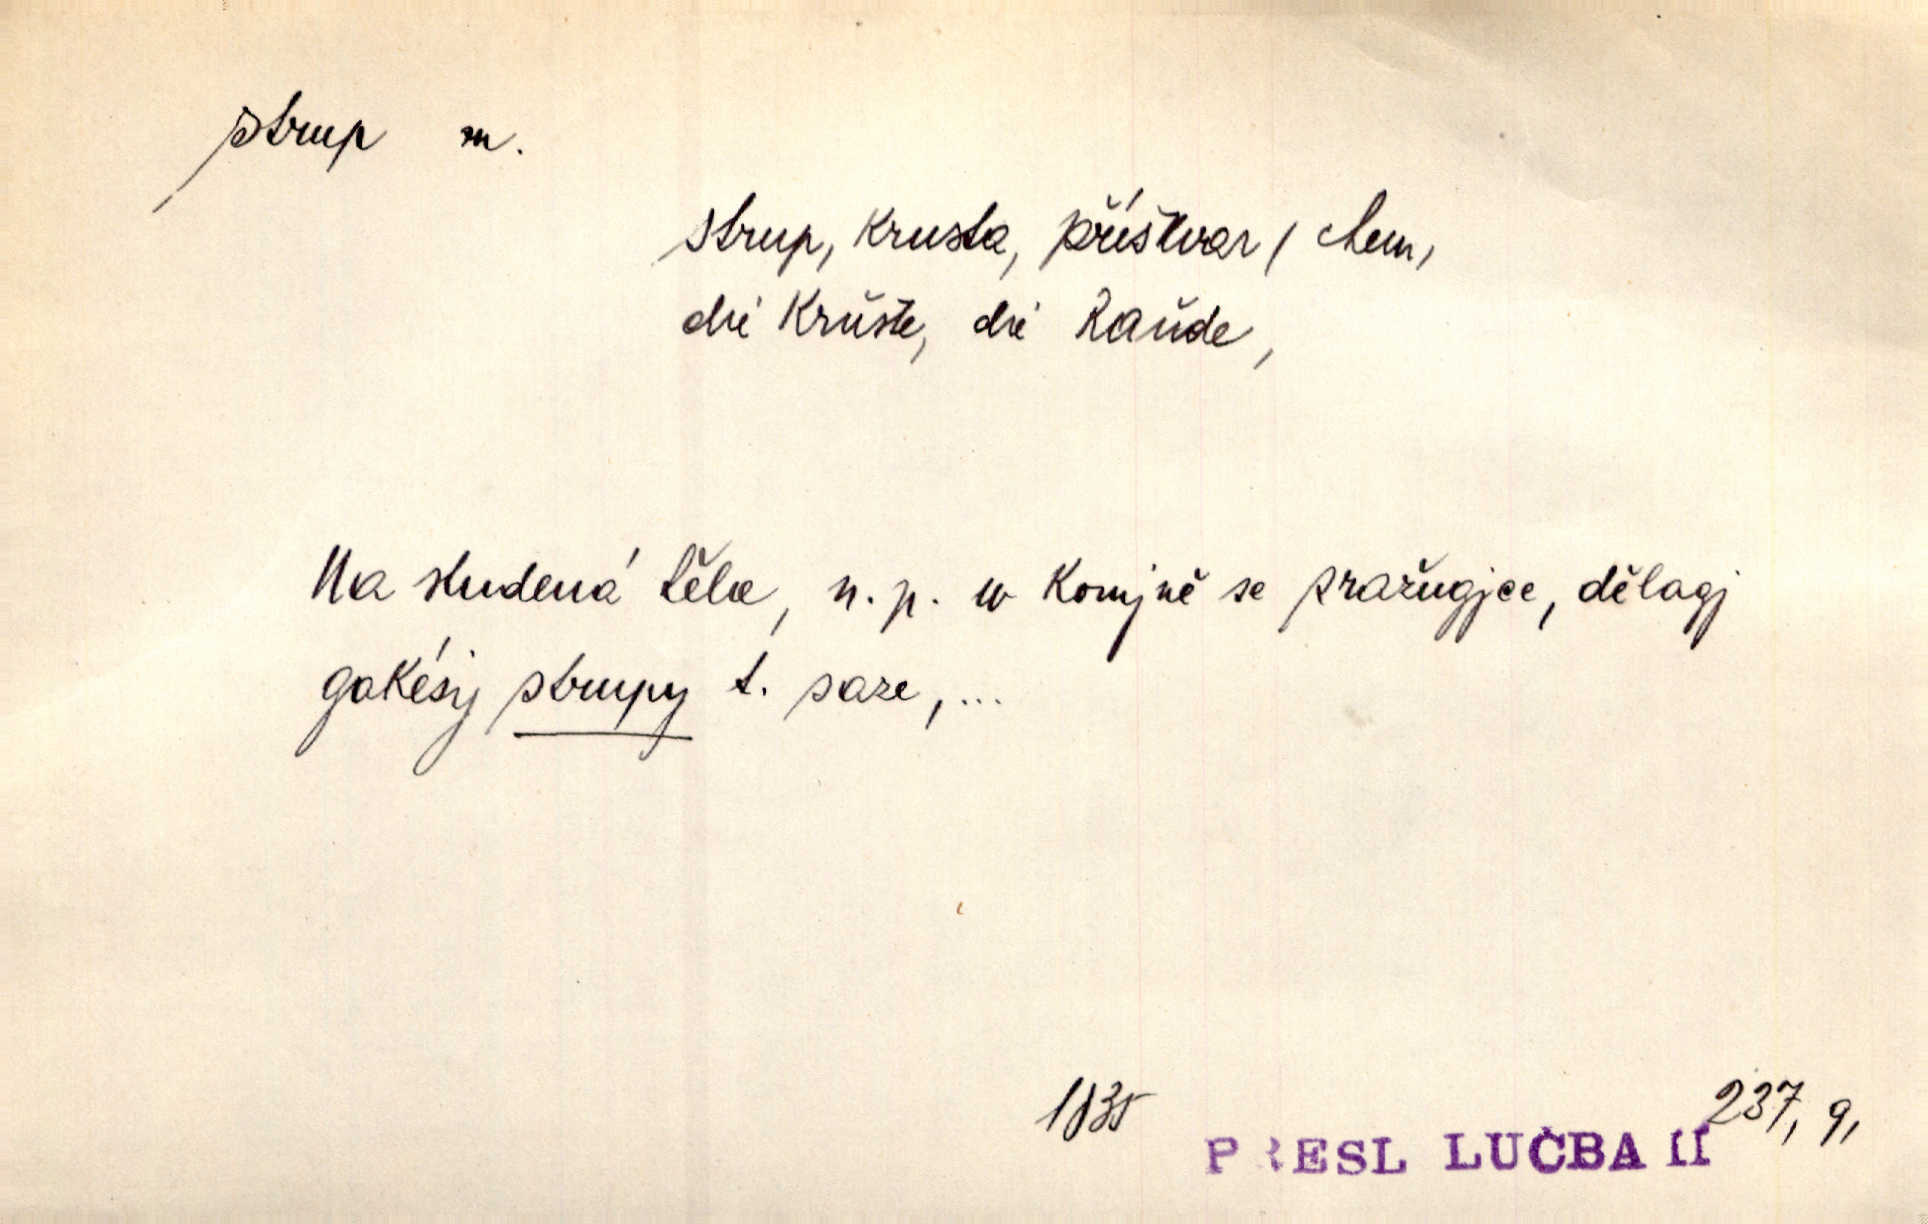 strup m.
strup, krusta, příštvar / chem,
die Kruste, die Raude,
Na studená těla, n. p. w komjně se sražugjce, dělagj
gakésy strupy t. saze, ...
1835
237, 9,
PRESL LUČBA II